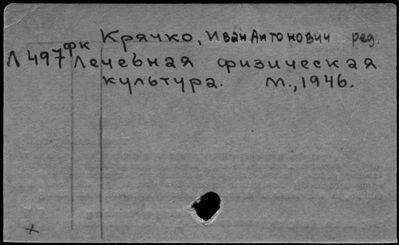 фк Крячко, Иван Антонович ред.
Л 497 Лечебная физическая
культура. М., 1946.
x